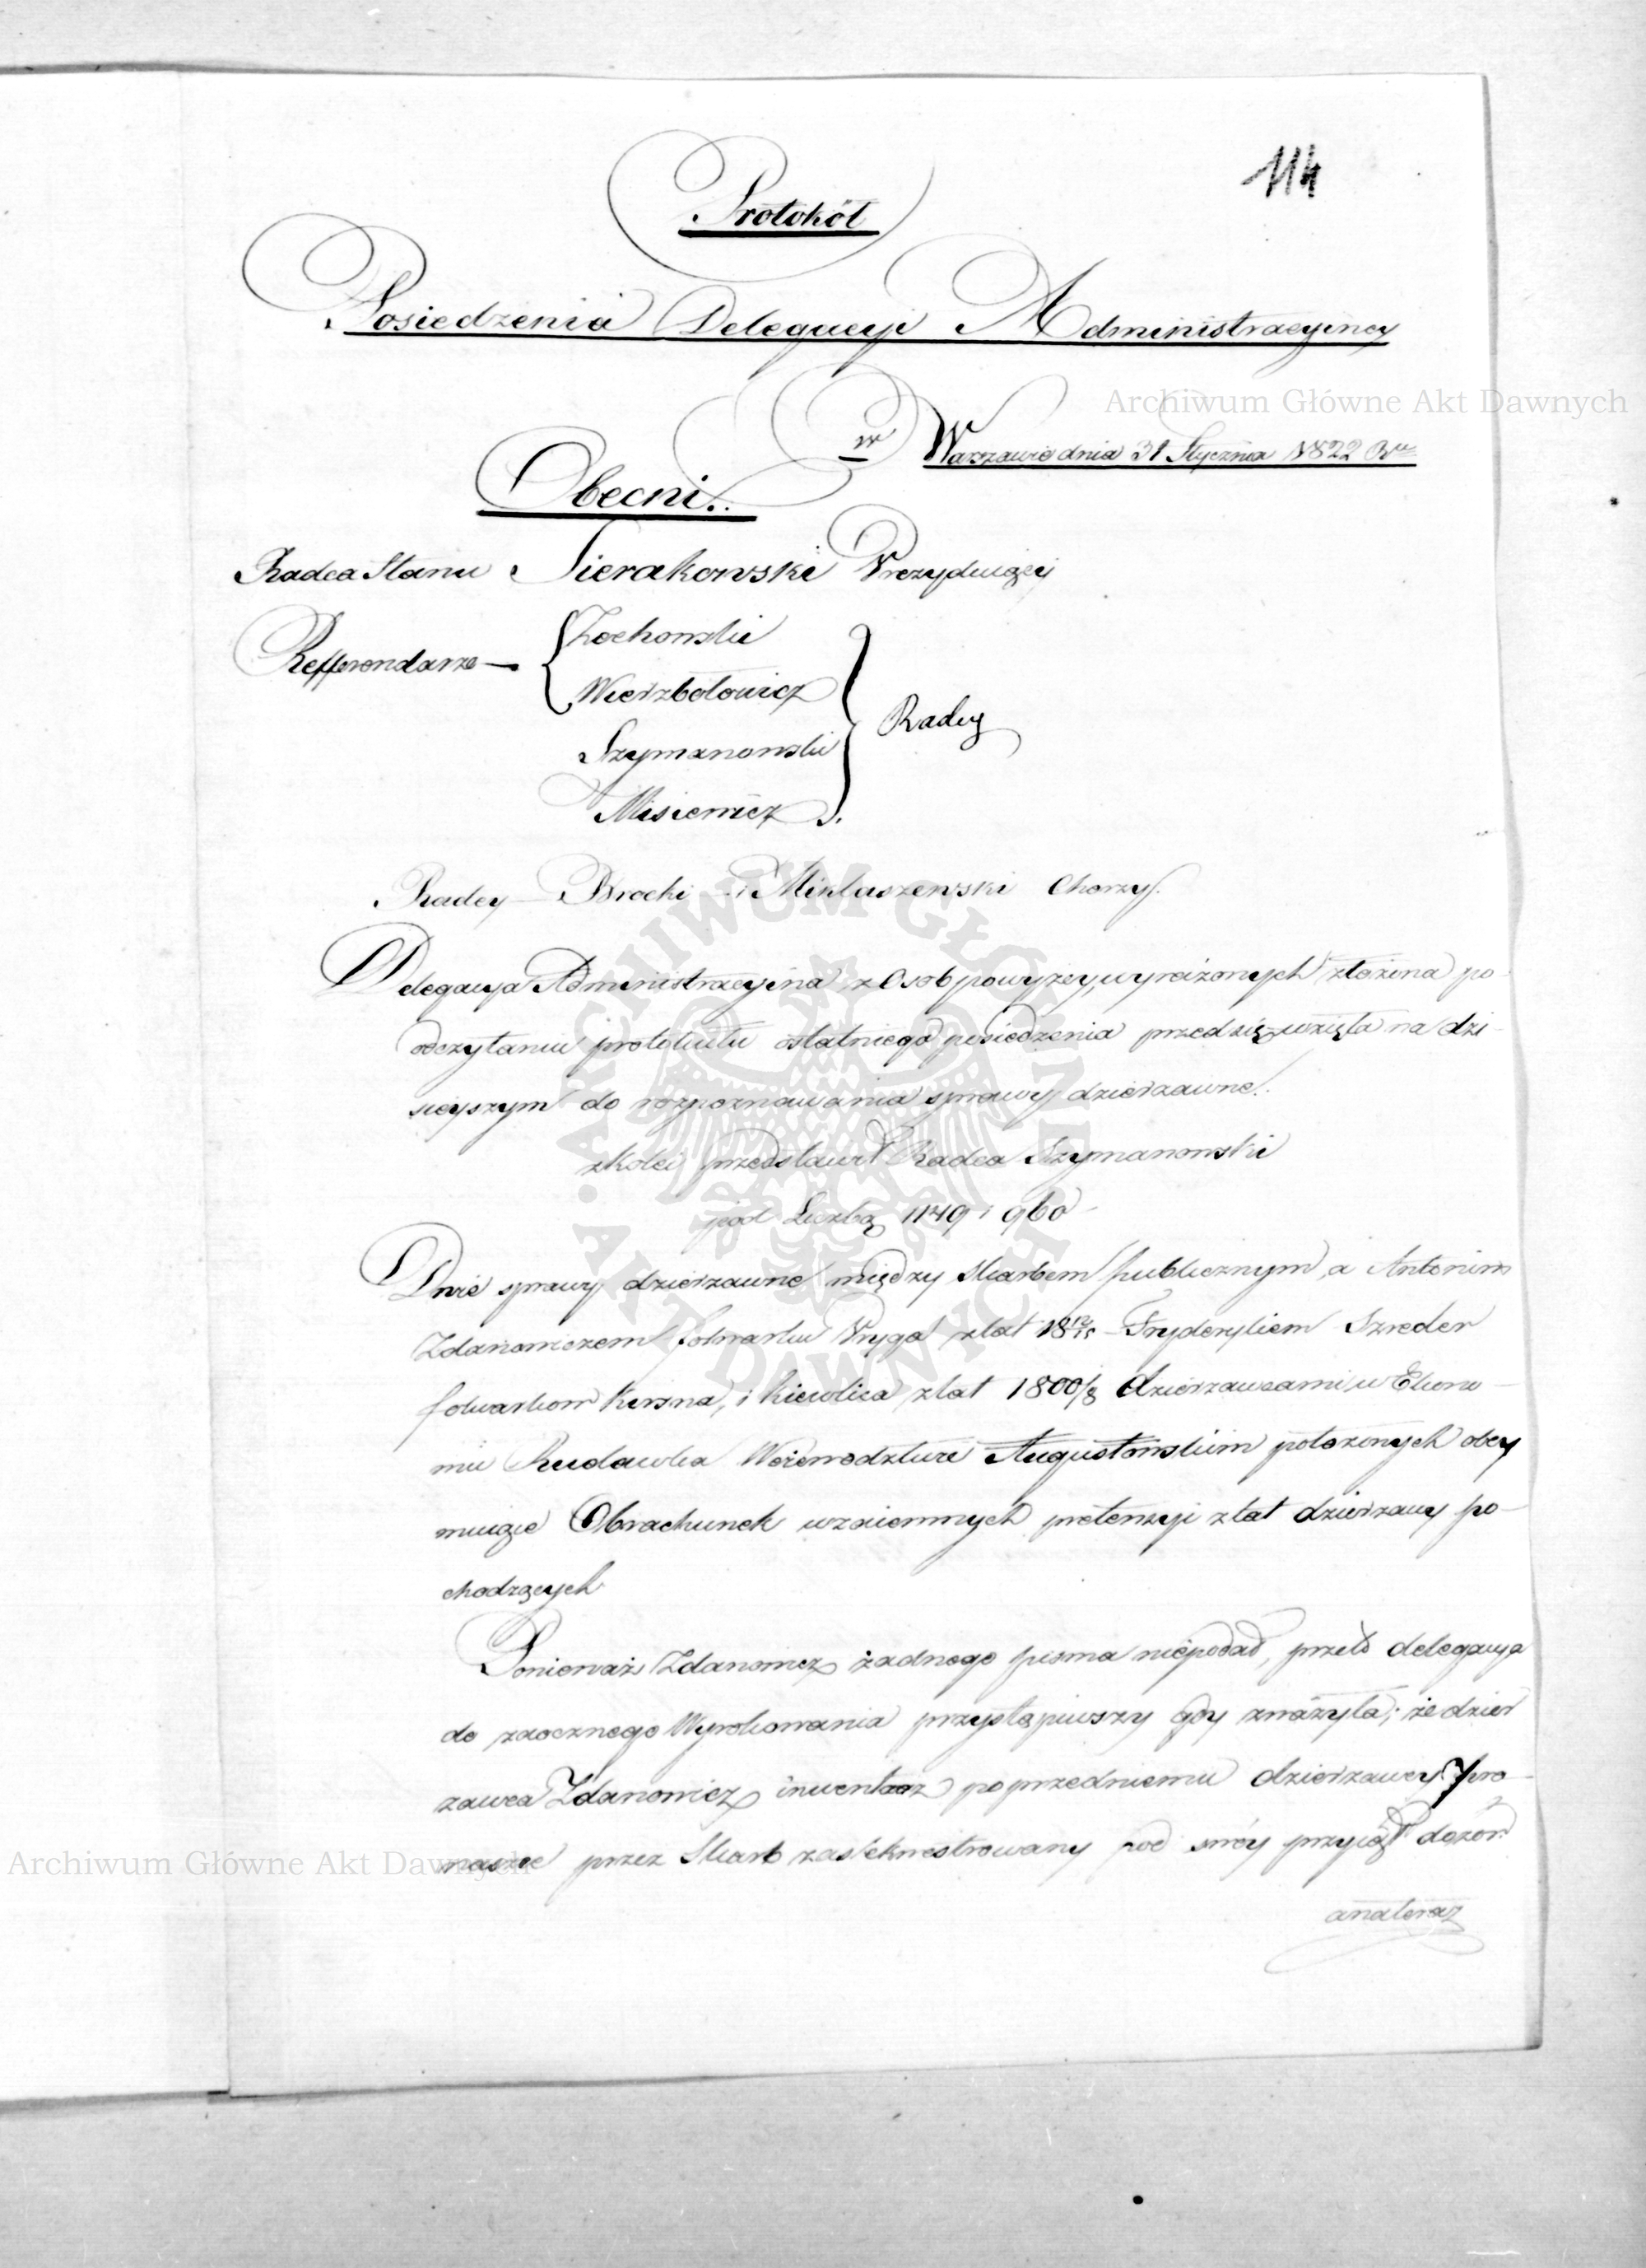 114
Protokół
Posiedzenia Delegacyi Administracyiney
w Warszawie dnia 31 Stycznia 1822 Ru
Archiwum Główne Akt Dawnych
Obecni.
Radca Stanu Sierakowski Prezyduiący
Żochowski
Refferendarze
Wierzbołowicz
Radcy
Szymanowski
Misiewicz
Radcy Brocki i Miklaszewski Chorzy.
Delegacya Administracyina z Osob powyzey wyrażonych złożona po
odczytaniu protokułu ostatniego posiedzenia przedsięwzięła na dzi
sieyszym do rozpoznawania sprawy dzierzawne.
zkolei przedstawił Radca Szymanowski
pod Liczbą 1149 i 960
Dwie sprawy dzierzawne między Skarbem publicznym, a Antonim
Zdanowiczem folwarku Pryga z lat 18 12/15 Fryderykiem Szreder
folwarkow Kirsna, i Kiewlica z lat 1800/8 dzierzawcami w Ekono
mii Rudawka Woiewodztwie Augustowskim położonych obey
muiące Obrachunek wzaiemnych pretensyi z lat dzierzawy po
chodzących
Ponieważ Zdanowicz żadnego pisma niepodał, przeto delegacya
do zaocznego Wyrokowania przystąpiwszy gdy zważyła; że dzier
zawca Zdanowicz inwentarz poprzedniemu dzierzawcy
przez Skarb zasekwestrowany pod swóy przyiął dozór
Archiwum Główne Akt Dawnych
anateraz
ARCHIWUM GŁÓWNE · AKT DAWNYCH ·